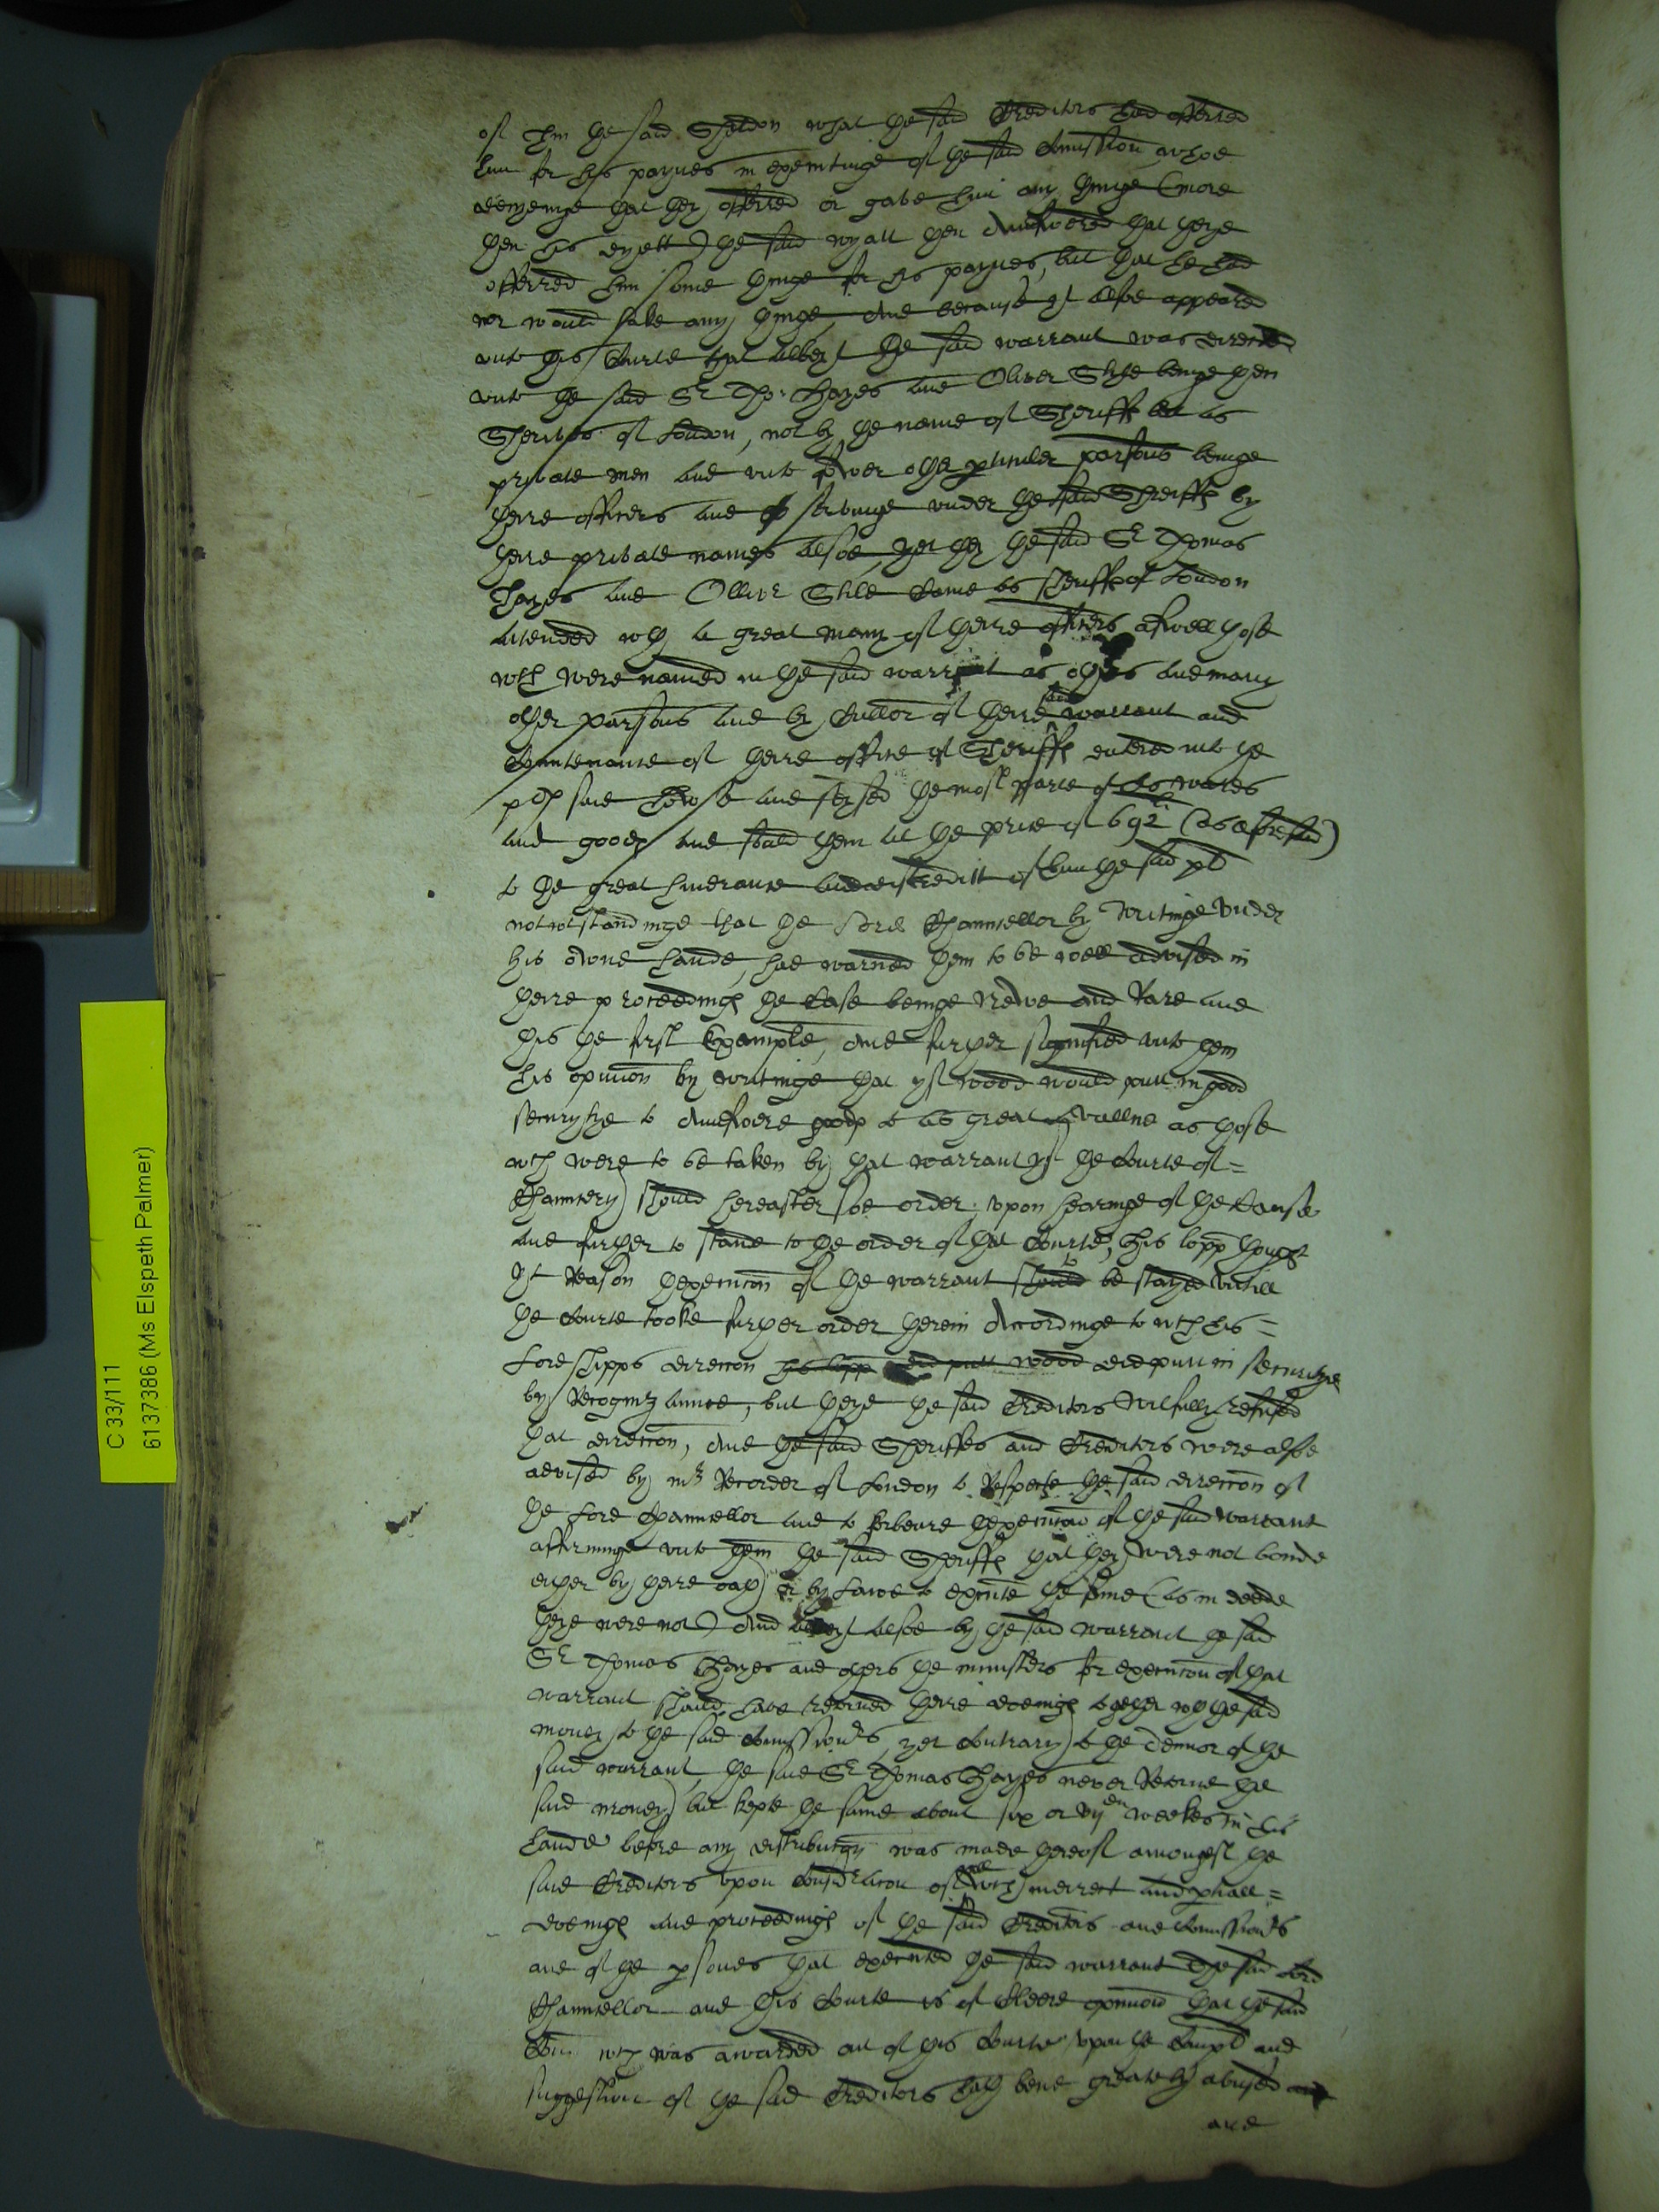 of him the said Sheldon what the said Creditors had offered
him for his paynes in executinge of the said Comission whoe
denyenge that they offered or gave him any thinge (more
then his dyett) the said wyatt then Answered that theye
offered him some thinge for his paynes, but that he had
nor would take any thinge, And because yt alsoe appeared
unto this Courte that albeyt the said warrant was directed
unto the said Sr Tho: Hayes and Oliver Stile beinge then
Sheriffes of London, not by the name of Sheriffs but as
private men and unto other pticuler parsons beinge
theire officers and servinge under the said Sheriffs by
theire private names alsoe, yet they the said Sr Thomas
Hayes and Olliver Stile Came as Sheriffs of London
attended wth a great many of theire officers aswell those
wch were named in the said warrant as others and many
other parsons and by Cullor of theire said warrant and
Countenance of theire office of Sheriffs entered into the
plts said howse and seysed the most parte of his wares
and goods and sould them at the price of 692li (as aforesaid)
to the great hinderance and discreditt of him the said plt
notwthstandinge that the Lord Chauncellor by writinge under
his owne hande, had warned them to be well advised in
theire proceedings the Case beinge newe and Rare and
this the first Example, And further signified unto them
his opinion by writinge that yf wood would putt in good
securytye to Answere goods to as great a vallue as those
wch were to be taken by that warrant yf the Courte of =
Chauncery should hereafter soe order upon hearinge of the Cause
and further to stand to the order of that Courte, his lopp thought
yt Reason thexecucon of the warrant should be stayed untill
the Courte tooke further order therein Accordinge to wch his =
Lordshipps direccon his lopp did putt wood did putt in securitye
by Recognizaunce, but theye the said Creditors wilfully refused
that direccon, And the said Sheriffes and Creditors were alsoe
advised by mr Recorder of London to Respecte the said direccon of
the Lord Chauncellor and to forbeare thexecucon of the said warrant
affirminge unto them the said Sheriffs that they were not bonde
either by theire oath or by Lawe to execute the same (as in deede
theye were not) And albeyt alsoe by the said warrant the said
Sr Thomas Hayes and others the ministers for execucon of that
warrant should have retorned theire doeings together wth the said
money to the said Comissionrs, yet Contrary to the tennor of the
said warrant the said Sr Thomas Hayes never Retorne the
said money but kepte the same about six or vijen weekes in his
hande before any distributyn was made thereof amongest the
said Creditors upon Considracon of all wch indirect and ptiall =
doeings and proceedings of the said Creditors and Comissionrs
and of the psones that executed the said warrant the said Lord
Chauncellor and this Courte is of Cleere opinion that the said
Com wch was awarded out of this Courte upon the Complt and
suggestion of the said Creditors hath bene greately abused and
and
C 33/111
6137386 (Ms Elspeth Palmer)